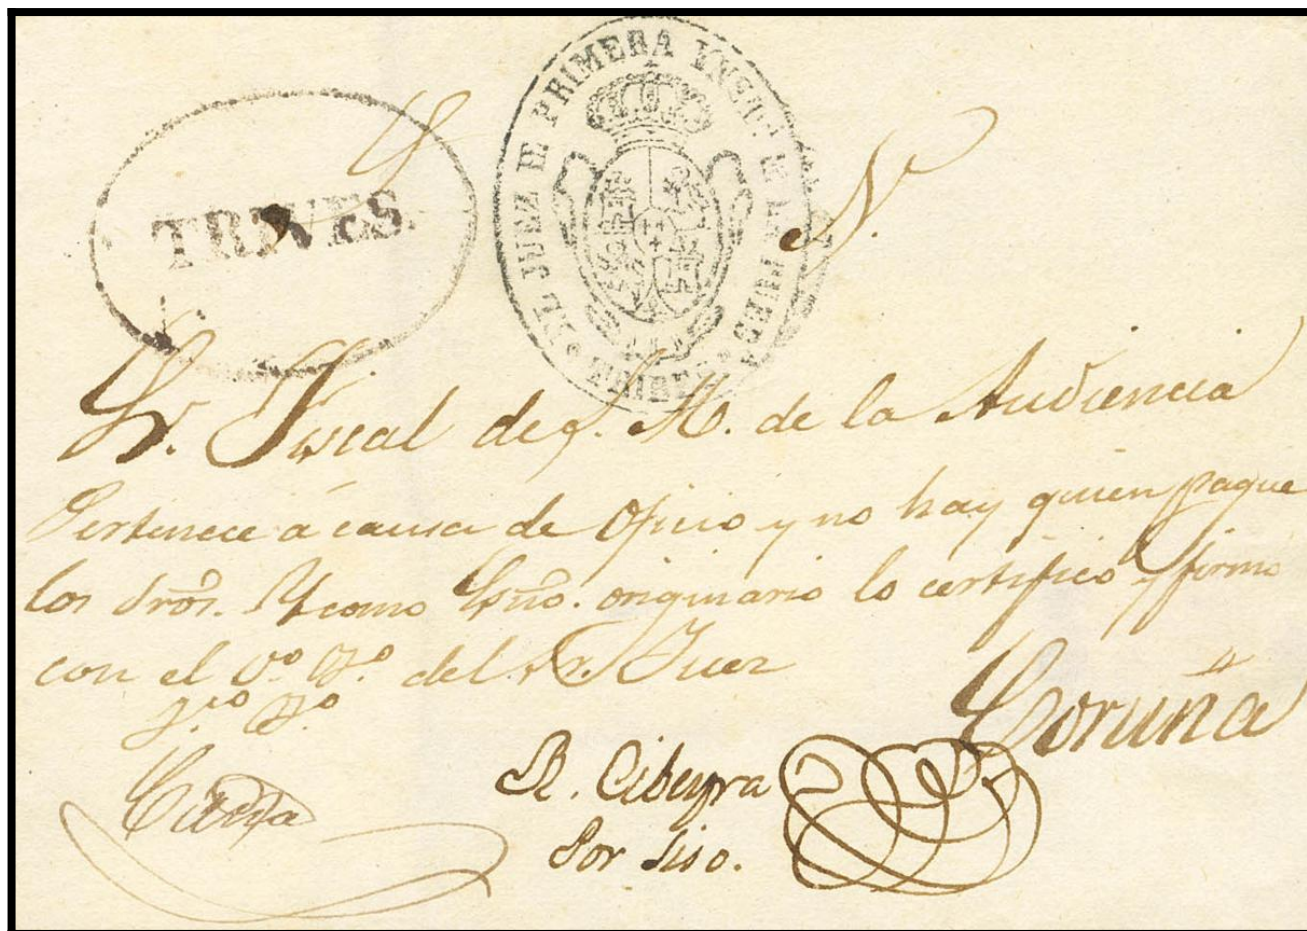 TRIVES.
EL JUEZ DE PRIMERA INST.
N.
Sr. Fiscal de S. M. de la Audiencia
Pertenece á causa de Oficio y no hay quien pague
los dros. Y como Esño. originario lo certifico y firmo
con el Vº. Bº. del Sr. Juez
Coruña
Vº Bº
R. Cibeyra
Por Siso.